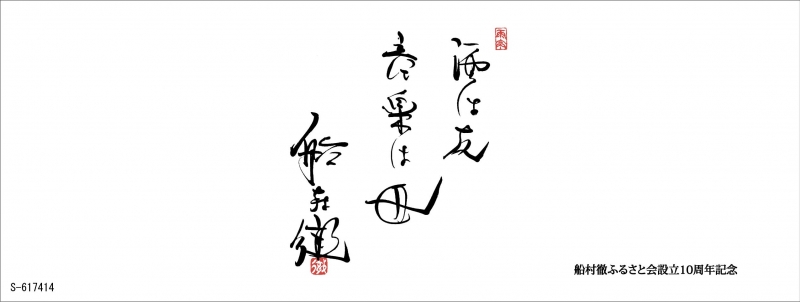 酒は友
音楽は母
船村徹
船村徹ふるさと会設立10周年記念
S-617414